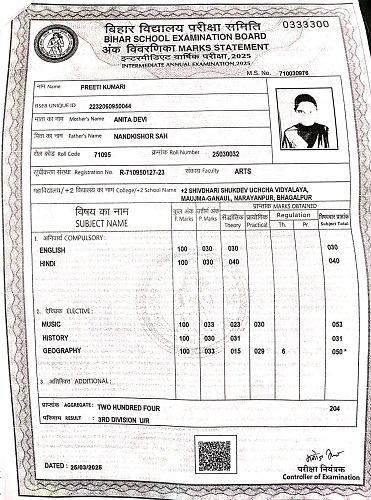 बिहार विद्यालय परीक्षा समिति 0333300
BIHAR SCHOOL EXAMINATION BOARD
अंक विवरणिका MARKS STATEMENT
इन्टरमीडिएट वार्षिक परीक्षा, 2025
INTERMEDIATE ANNUAL EXAMINATION, 2025
M.S. No. 710030976
नाम Name PREETI KUMARI
BSEB UNIQUE ID 2232060950044
माता का नाम Mother's Name ANITA DEVI
पिता का नाम Father's Name NANDKISHOR SAH
रौल कोड Roll Code 71095 क्रमांक Roll Number 25030032
सूचीकरण संख्या Registration No. R-710950127-23 संकाय Faculty ARTS
महाविद्यालय/+2 विद्यालय का नाम College/+2 School Name +2 SHIVDHARI SHUKDEV UCHCHA VIDYALAYA,
MAUJMA-GANAUL, NARAYANPUR, BHAGALPUR
विषय का नाम SUBJECT NAME कुल अंक F. Marks उत्तीर्ण अंक P. Marks प्राप्तांक MARKS OBTAINED
सैद्धांतिक Theory प्रायोगिक Practical Regulation Th. Pr. विषयवार प्राप्तांक Subject Total
1. अनिवार्य COMPULSORY :
ENGLISH 100 030 030 030
HINDI 100 030 040 040
2. ऐच्छिक ELECTIVE :
MUSIC 100 033 023 030 053
HISTORY 100 030 031 031
GEOGRAPHY 100 033 015 029 6 050 *
3. अतिरिक्त ADDITIONAL :
प्राप्तांक AGGREGATE : TWO HUNDRED FOUR 204
परिणाम RESULT : 3RD DIVISION U/R
DATED : 25/03/2025
परीक्षा नियंत्रक
Controller of Examination